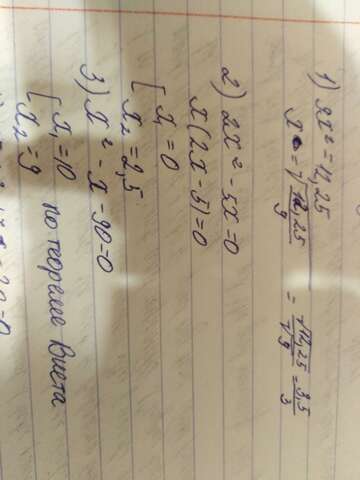 1) 9x² = 12,25
x = √12,25/9 = √12,25/√9 = 3,5/3
2) 2x² - 5x = 0
x(2x - 5) = 0
[ x₁ = 0
x₂ = 2,5
3) x² - x - 90 = 0
[ x₁ = 10 по теореме Виета
x₂ = 9